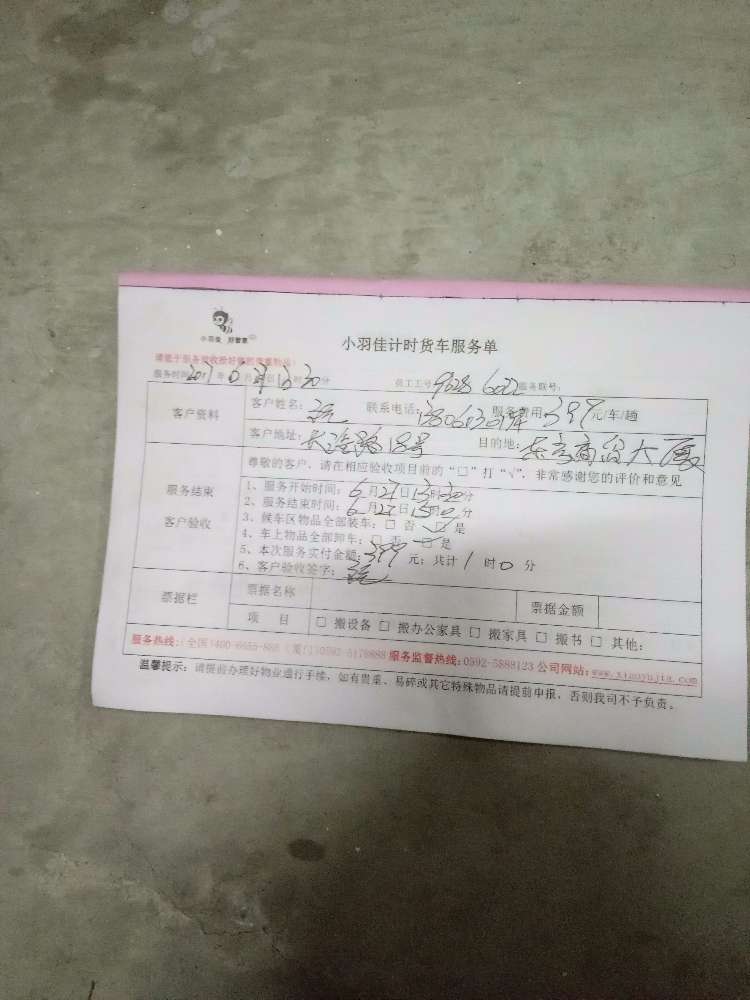 小羽佳 好管家
小羽佳计时货车服务单
服务时间: 年 月 日 时30分 员工工号 9628 6022 服务联号:
客户资料 客户姓名: 联系电话: 服务费用: 399元/车/趟
客户地址: 长 路18号 目的地: 商贸大厦
尊敬的客户,请在相应验收项目前的“□”打“√”,非常感谢您的评价和意见
服务结束
客户验收
1、服务开始时间: 6月27日 时30分
2、服务结束时间: 6月27日 时 分
3、候车区物品全部装车: □ 否 □ 是
4、车上物品全部卸车: □ 否 □ 是
5、本次服务实付金额: 399 元; 共计 1 时 0 分
6、客户验收签字:
票据栏 票据名称 票据金额
项 目 □ 搬设备 □ 搬办公家具 □ 搬家具 □ 搬书 □ 其他:
服务热线: 服务监督热线: 0592-5888123 公司网站: www.xiaoyujia.com
温馨提示: 请提前办理好物业通行手续, 如有贵重、易碎或其它特殊物品请提前申报, 否则我司不予负责。